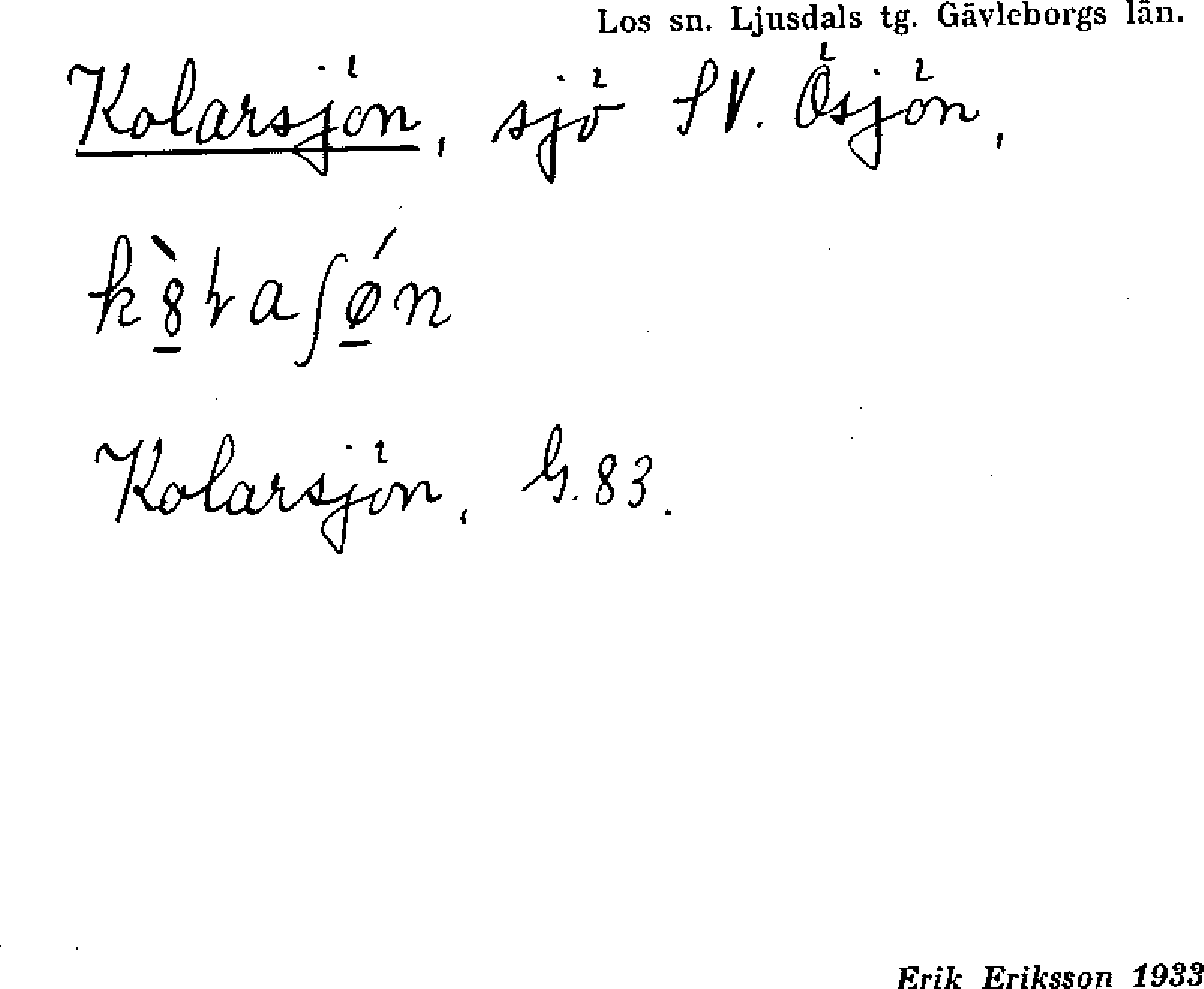 Los sn. Ljusdals tg. Gävleborgs län.
Kolarsjön, sjö SV. Ösjön,
Kolarsjön, G. 83.
Erik Eriksson 1933